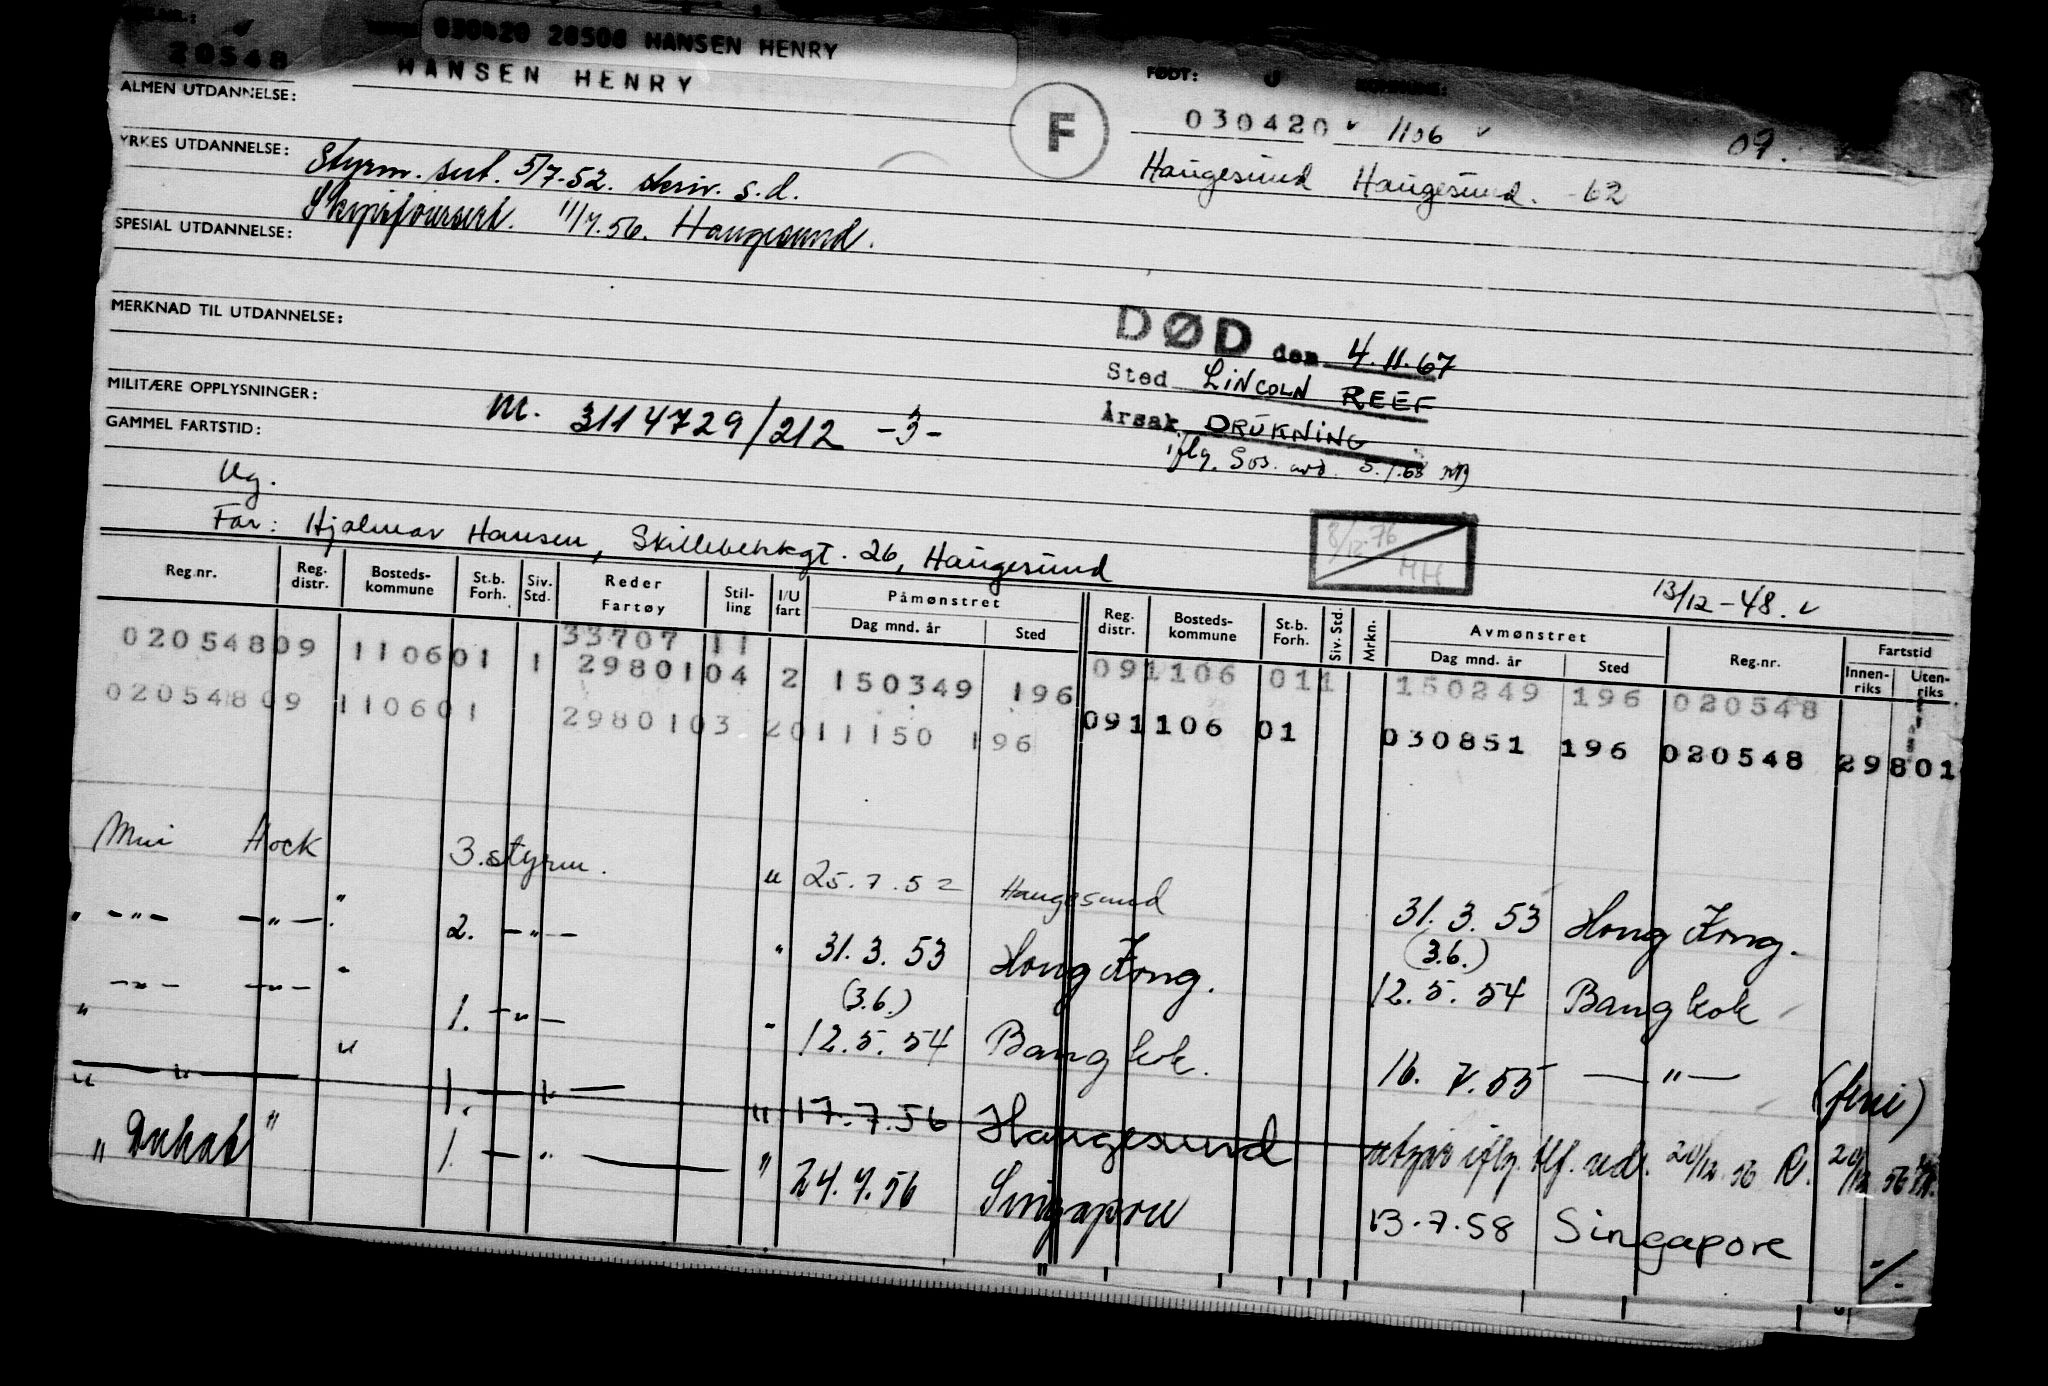 20548
030420 20500 HANSEN HENRY
HANSEN HENRY
FØDT:
ALMEN UTDANNELSE:
F
030420 1106 09.
YRKES UTDANNELSE: Styrm. sert. 5/7-52. skriv. s.d.
Haugesund Haugesund. -62
11/7.56. Haugesund.
SPESIAL UTDANNELSE:
MERKNAD TIL UTDANNELSE:
DØD den 4.11.67
Sted LINCOLN REEF
MILITÆRE OPPLYSNINGER: M. 3114729/212 -3-
Årsak DRUKNING
GAMMEL FARTSTID:
iflg. Sos. avd. 5.1.68
Ug.
Far: Hjalmar Hansen, Skillebekkgt. 26, Haugesund
8/12-76 HH
13/12-48.
Reg.nr. Reg. distr. Bosteds-kommune St.b. Forh. Siv. Std. Reder Fartøy Stil-ling I/U fart Påmønstret Dag mnd. år Sted Reg. distr. Bosteds-kommune St.b. Forh. Siv. Std. Mrkn. Avmønstret Dag mnd. år Sted Reg.nr. Fartstid Innen-riks Uten-riks
33707 11
020548 09 1106 01 1 29801 04 2 150349 196 09 1106 01 1 150249 196 020548
020548 09 1106 01 29801 03 2 011150 196 09 1106 01 030851 196 020548 29801
Hock 3. styrm. " 25.7.52 Haugesund 31.3.53 Hong Kong.
" -"- -"- " 2. -"- " 31.3.53 Hong Kong. (3.6.) 12.5.54 Bangkok
-"- -"- " 1. -"- " (3.6.) 12.5.54 Bangkok. 16.7.55 -"-
" " " 1. -"- " 17.7.56 Haugesund utgår iflg. tlf. red. 20/12.56 R. 20/12 56
" " 1. -"- " 24.7.56 Singapore 13.7.58 Singapore